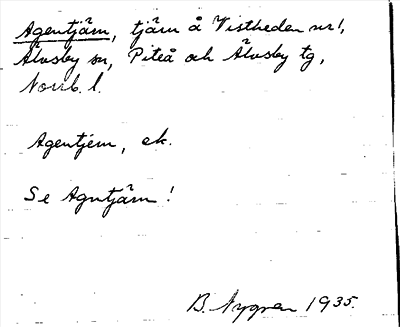 Agentjärn, tjärn å Vistheden nr 1,
Älvsby sn, Piteå och Älvsby tg,
Norrb. l.
Agentjern, ek.
Se Agntjärn!
B. Nygren 1935.